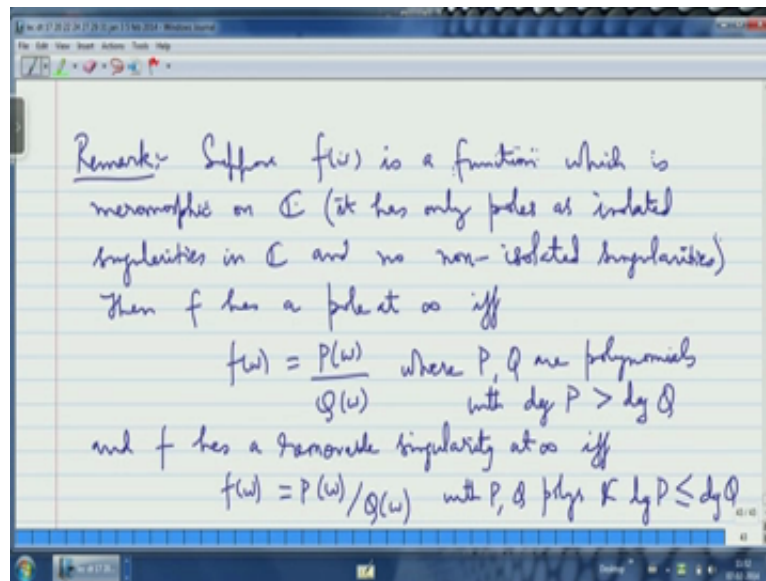 Remark:- Suppose f(w) is a function which is
meromorphic on ℂ (it has only poles as isolated
singularities in ℂ and no non-isolated singularities)
Then f has a pole at ∞ iff
f(w) = P(w)/Q(w) where P, Q are polynomials
with deg P > deg Q
and f has a removable singularity at ∞ iff
f(w) = P(w)/Q(w) with P, Q polys & deg P ≤ deg Q